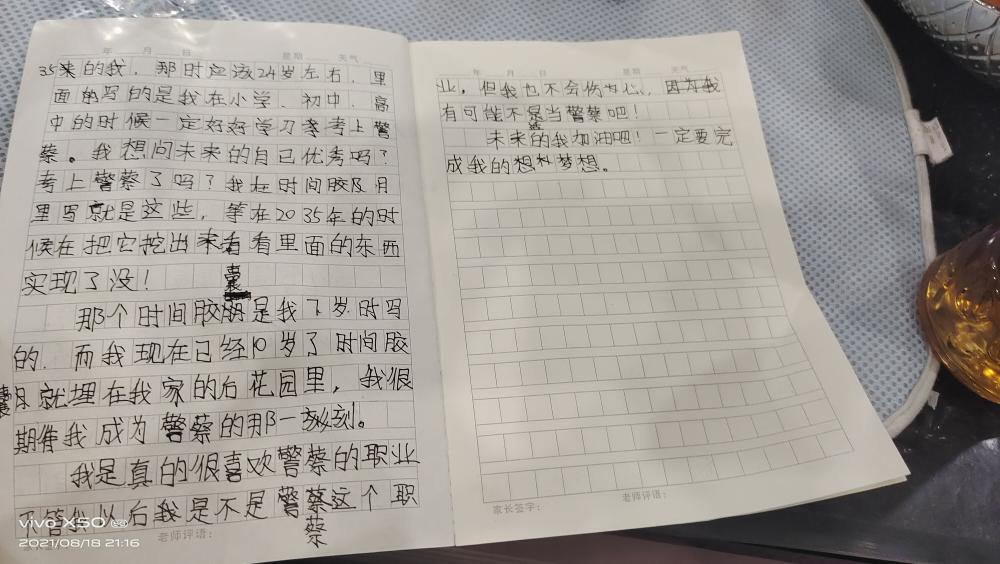 年 月 日 星期 天气
35来的我，那时应该24岁左右，里
面的写的是我在小学、初中、高
中的时候一定好好学习考考上警
察。我想问未来的自己优秀吗？
考上警察了吗？我在时间胶月
里写就是这些，等在2035年的时
候在把它挖出来看看里面的东西
实现了没！
囊
那个时间胶是我7岁时写
的．而我现在已经10岁了时间胶
囊就埋在我家的后花园里，我很
期待我成为警察的那一刻。
我是真的很喜欢警察的职业
不管我以后我是不是警察这个职
察
老师评语：
vivo X50
2021/08/18 21:16
年 月 日 星期 天气
业，但我也不会伤心，因为我
有可能不是当警察吧！
未来的我加油吧！一定要完
成我的想梦想。
家长签字： 老师评语：